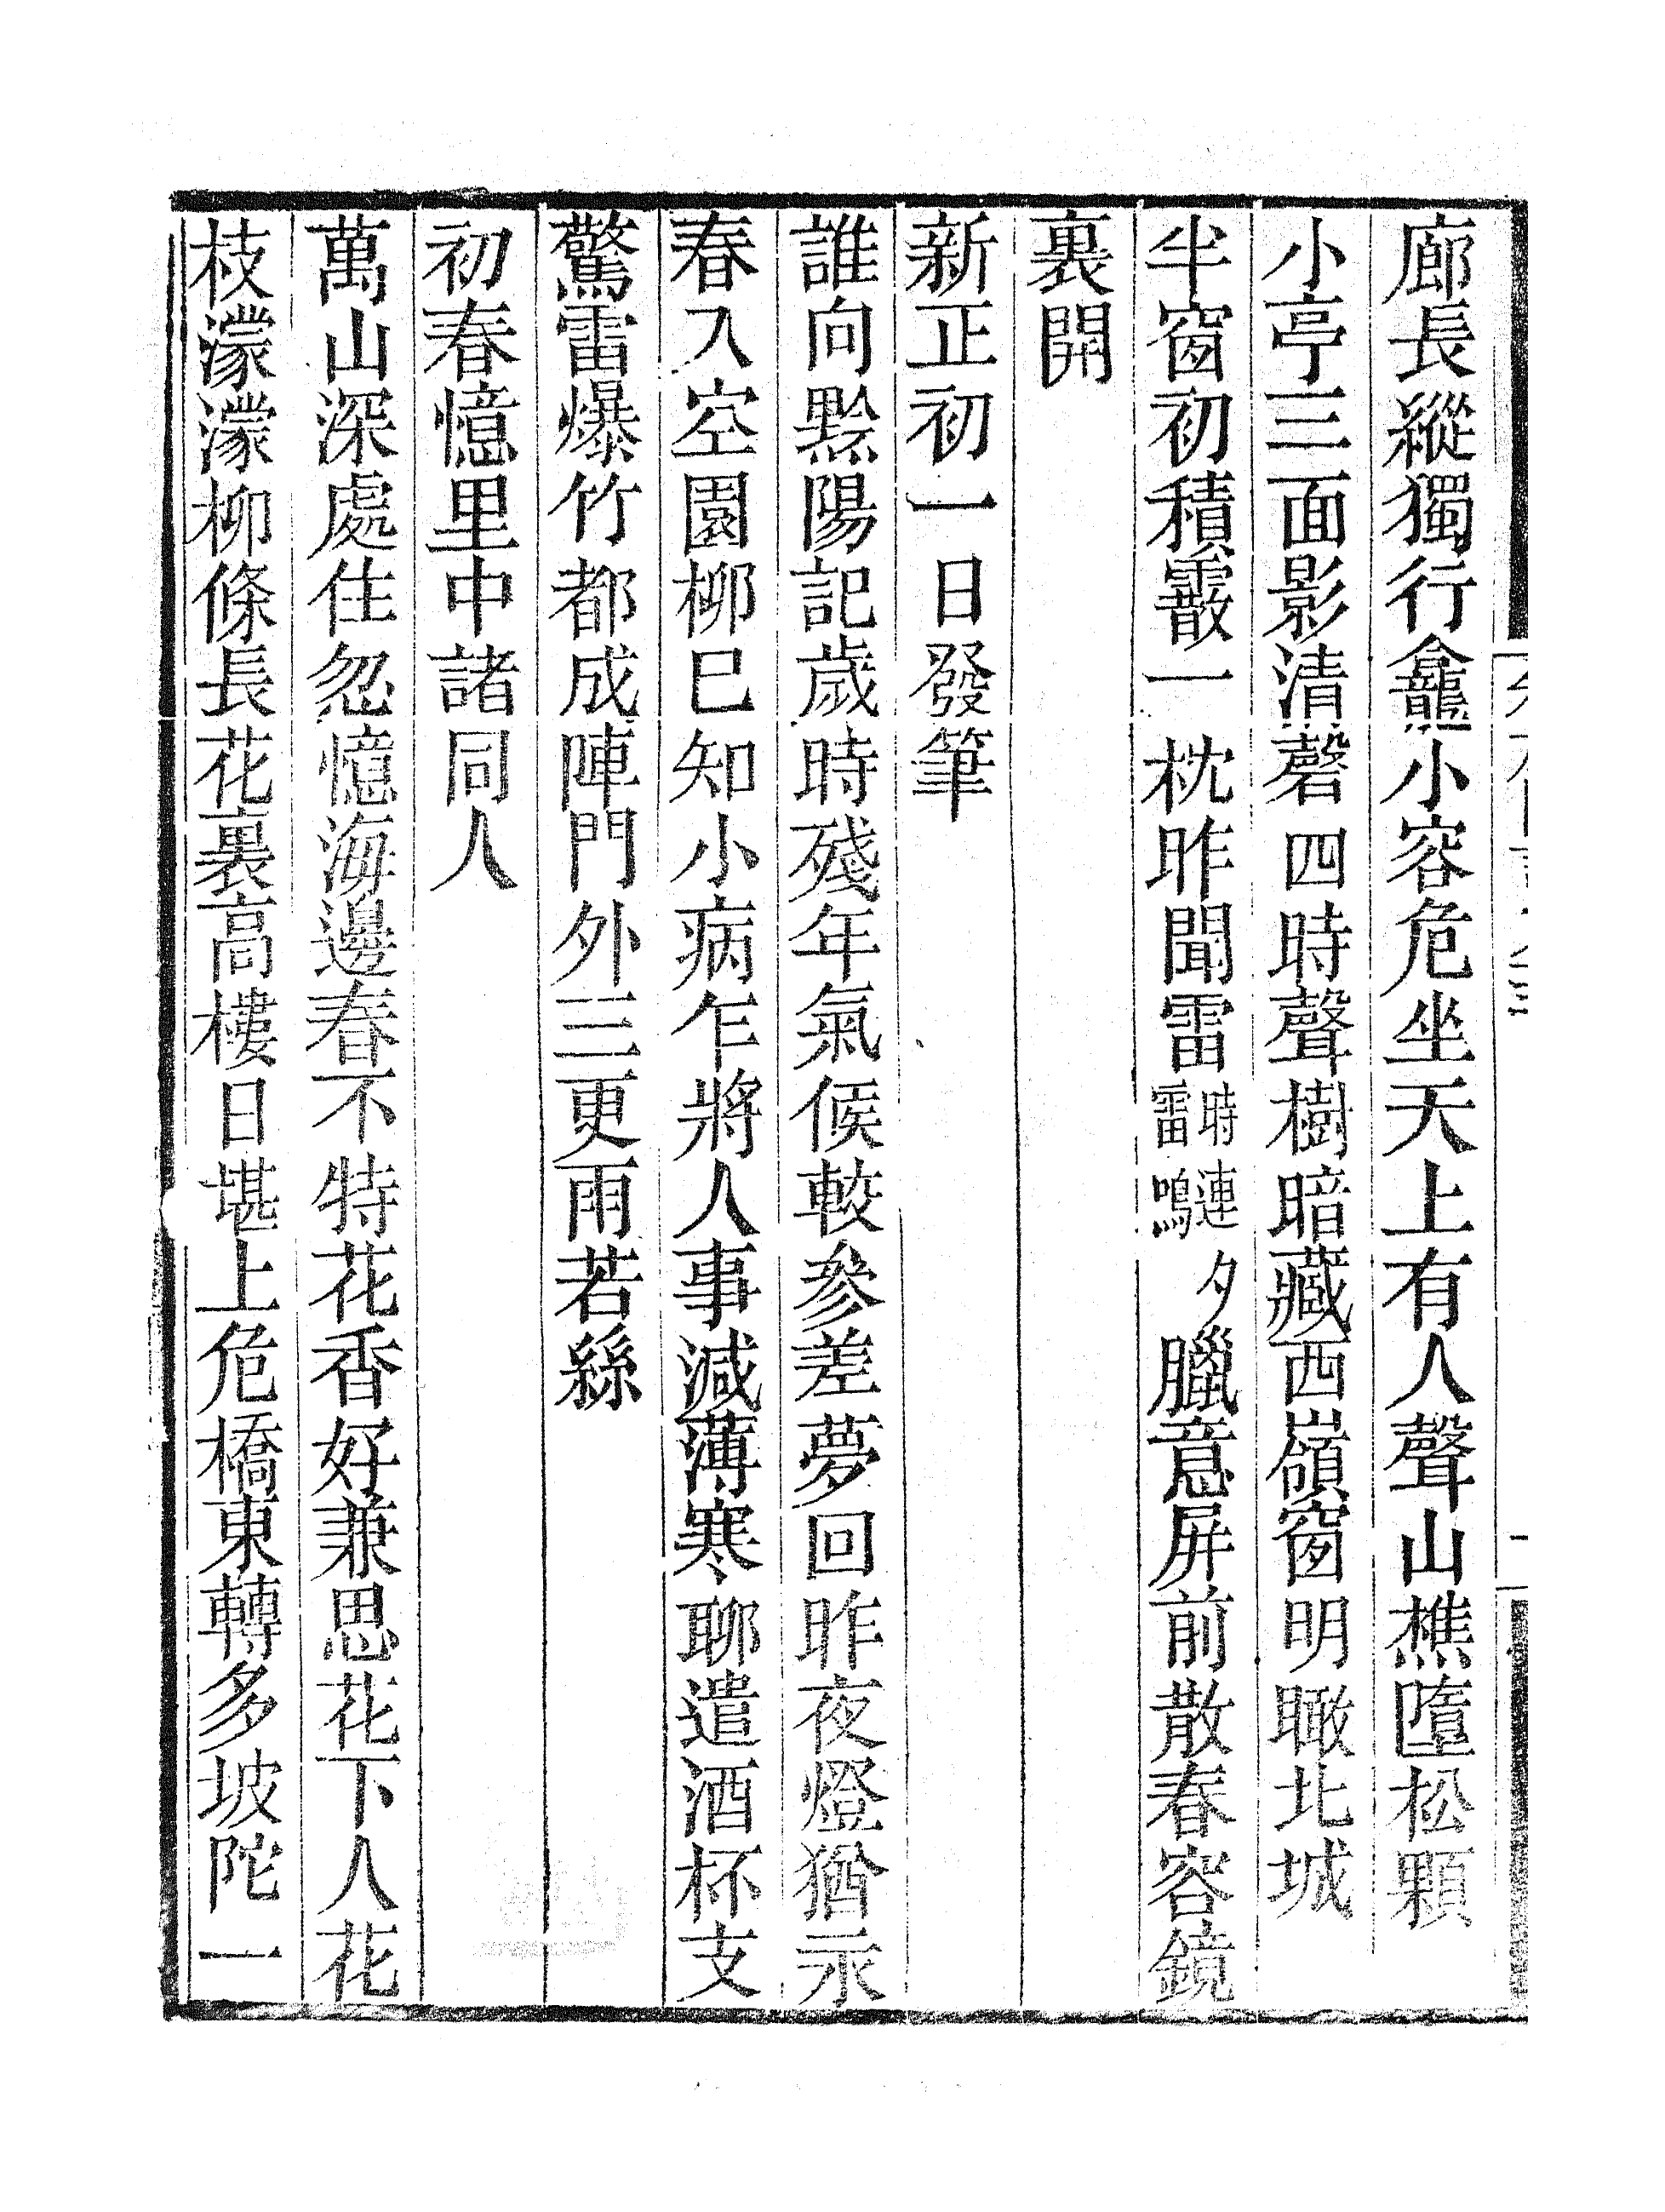 廊長縱獨行龕小容危坐天上有人聲山樵墮松顆
小亭三面影清磬四時聲樹暗藏西嶺窗明瞰北城
半窗初積霰一枕昨聞雷時連夕雷鳴臘意屏前散春容鏡
裏開
新正初一日發筆
誰向黔陽記歲時殘年氣候較參差夢回昨夜燈猶示
春入空園柳巳知小病乍將人事減薄寒聊遣酒杯支
驚雷爆竹都成陣門外三更雨若絲
初春憶里中諸同人
萬山深處住忽憶海邊春不特花香好兼思花下人花
枝濛濛柳條長花裏高樓日堪上危橋東轉多坡陀一